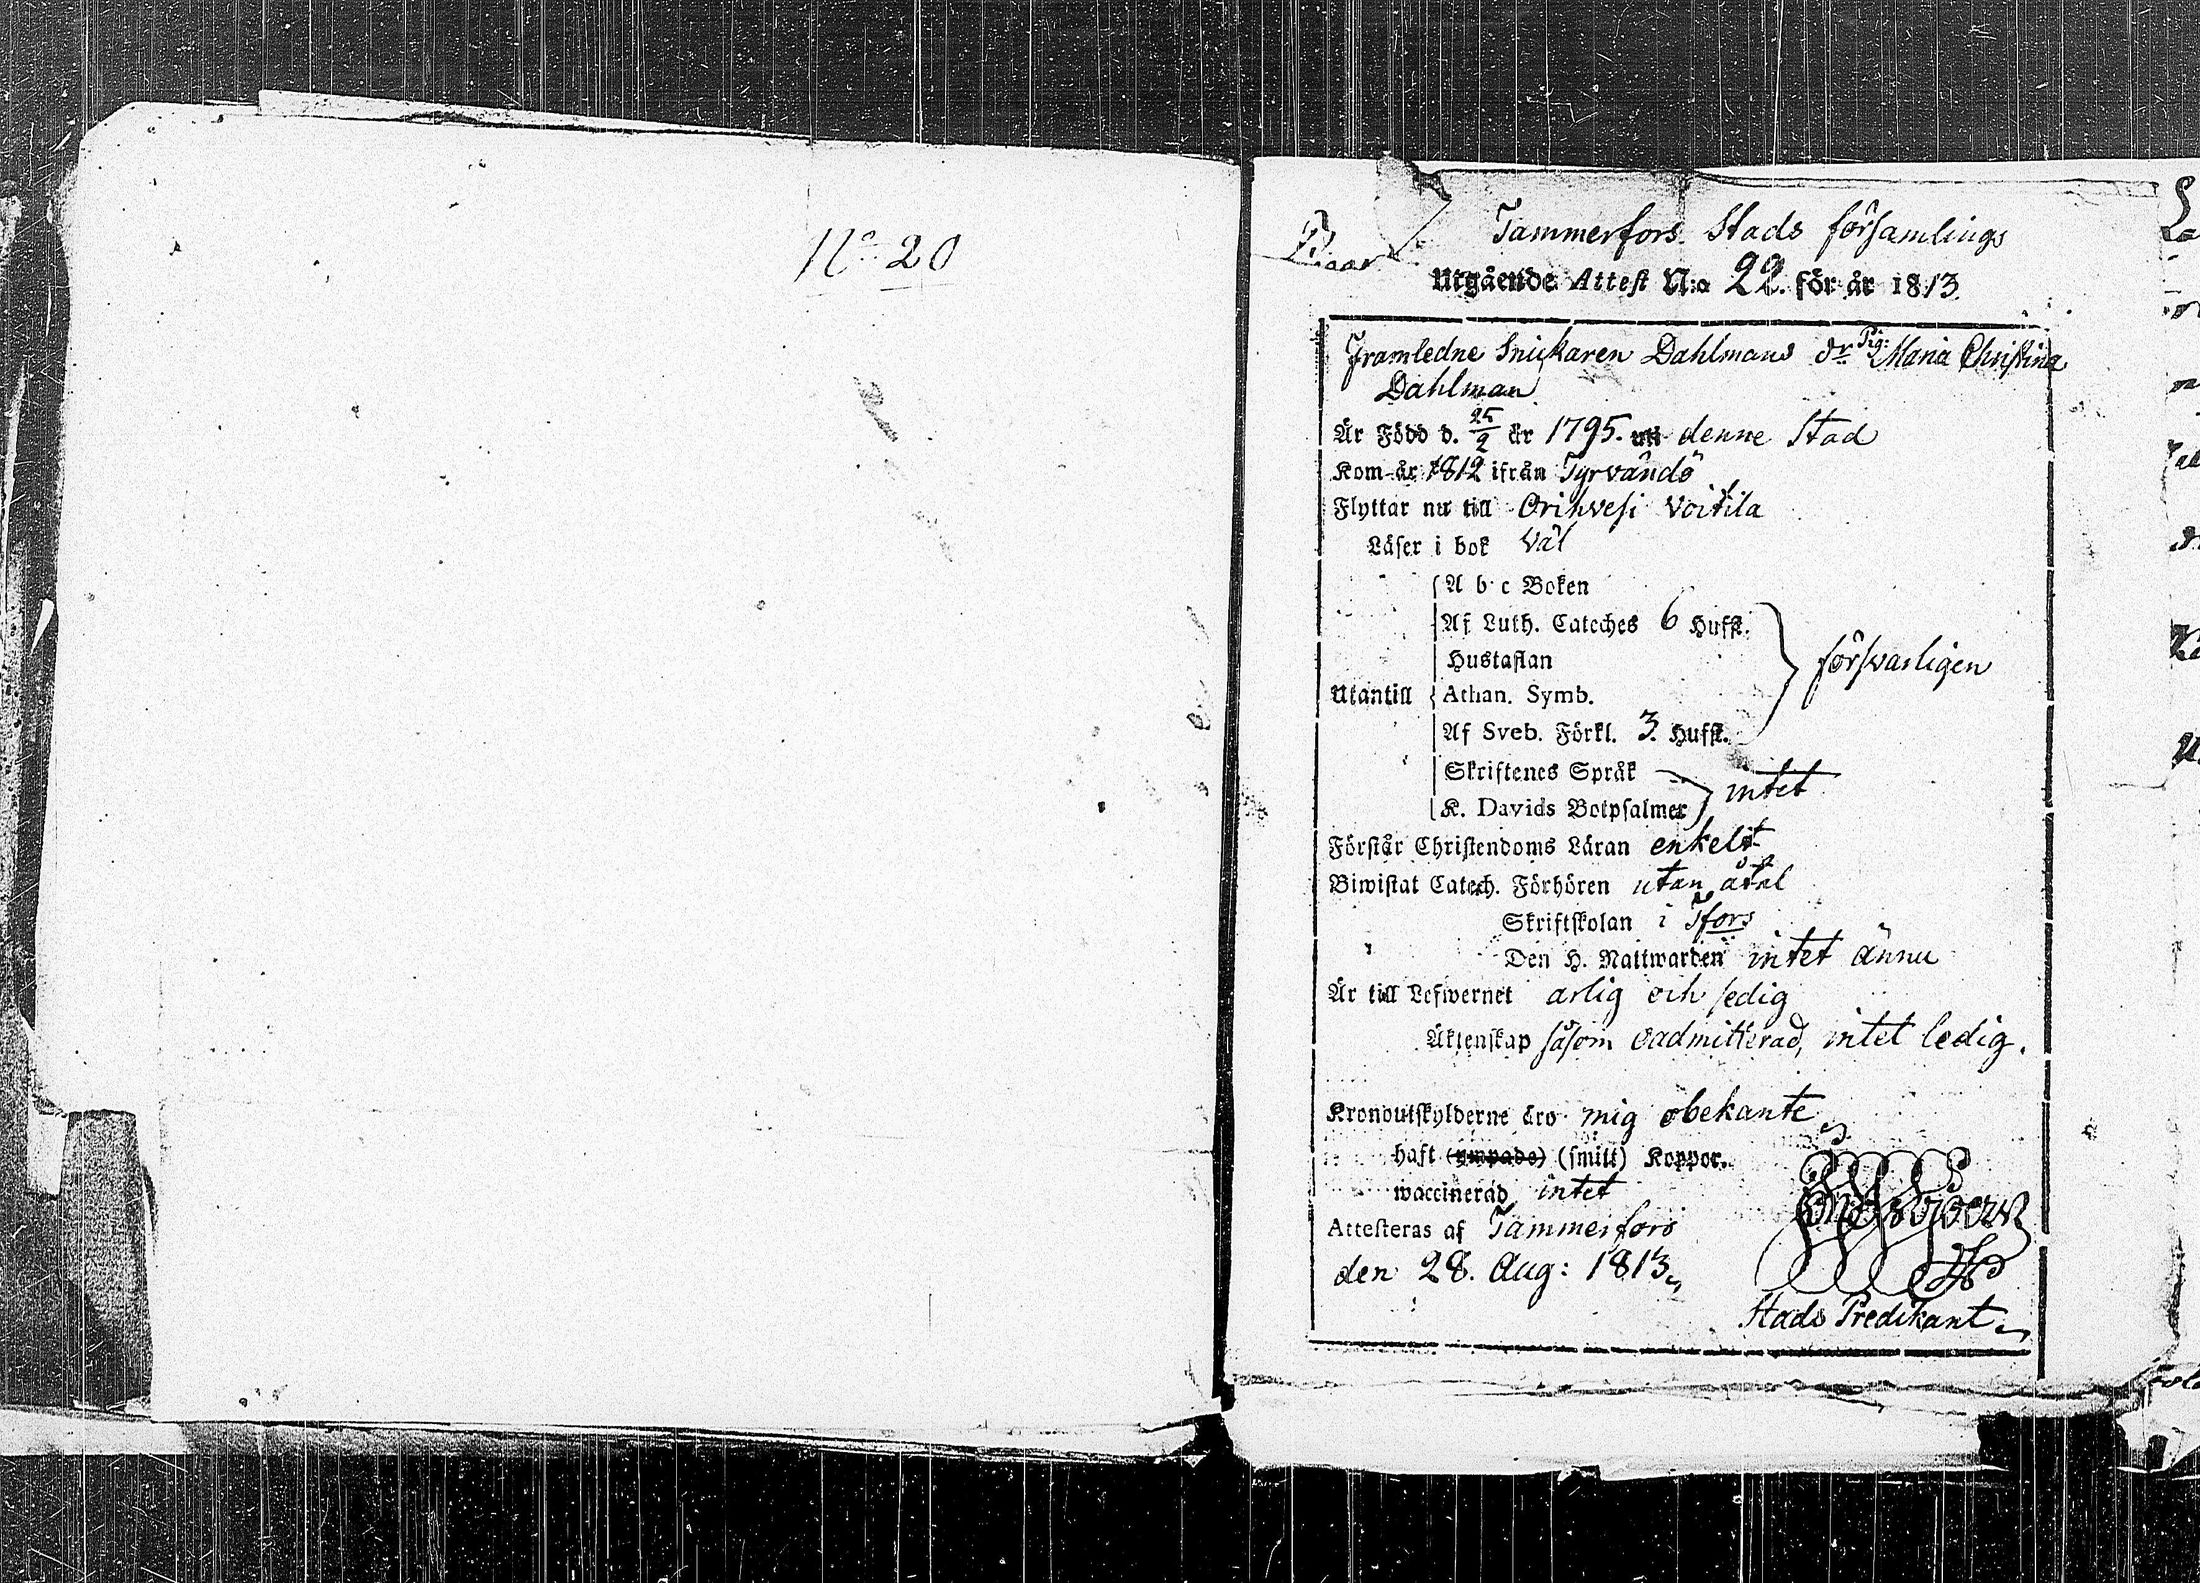 No 20
Tammerfors Stads församlings
Utgående Attest N:o 22. för år 1813.
Framledne Snickaren Dahlmans dr Pig: Maria Christina
Dahlman
Är Född d. 25/2 år 1795. uti denne Stad
Kom år 1812 ifrån Tyrvändö
Flyttar nu till Orihvesi Voitila
Läser i bok väl
Utantill
A b c Boken
Af Luth. Cateches 6 Hufst.
Hustaflan
Athan. Symb.
Af Sveb. Förkl. 3. Hufst.
försvarligen
Skriftenes Språk
K. Davids Botpsalmer
intet
Förstår Christendoms Läran enkelt
Biwistat Catech. Förhören utan åtal
Skriftskolan i Tfors
Den H. Nattwarden intet ännu
Är till Lefwernet ärlig och sedig
Äktenskap såsom oadmitterad, intet ledig.
Kronoutskylderne äro mig obekante
haft (ympade) (smitt) Koppor.
waccinerad intet
Attesteras af Tammerfors
den 28. Aug: 1813
Stads Predikant